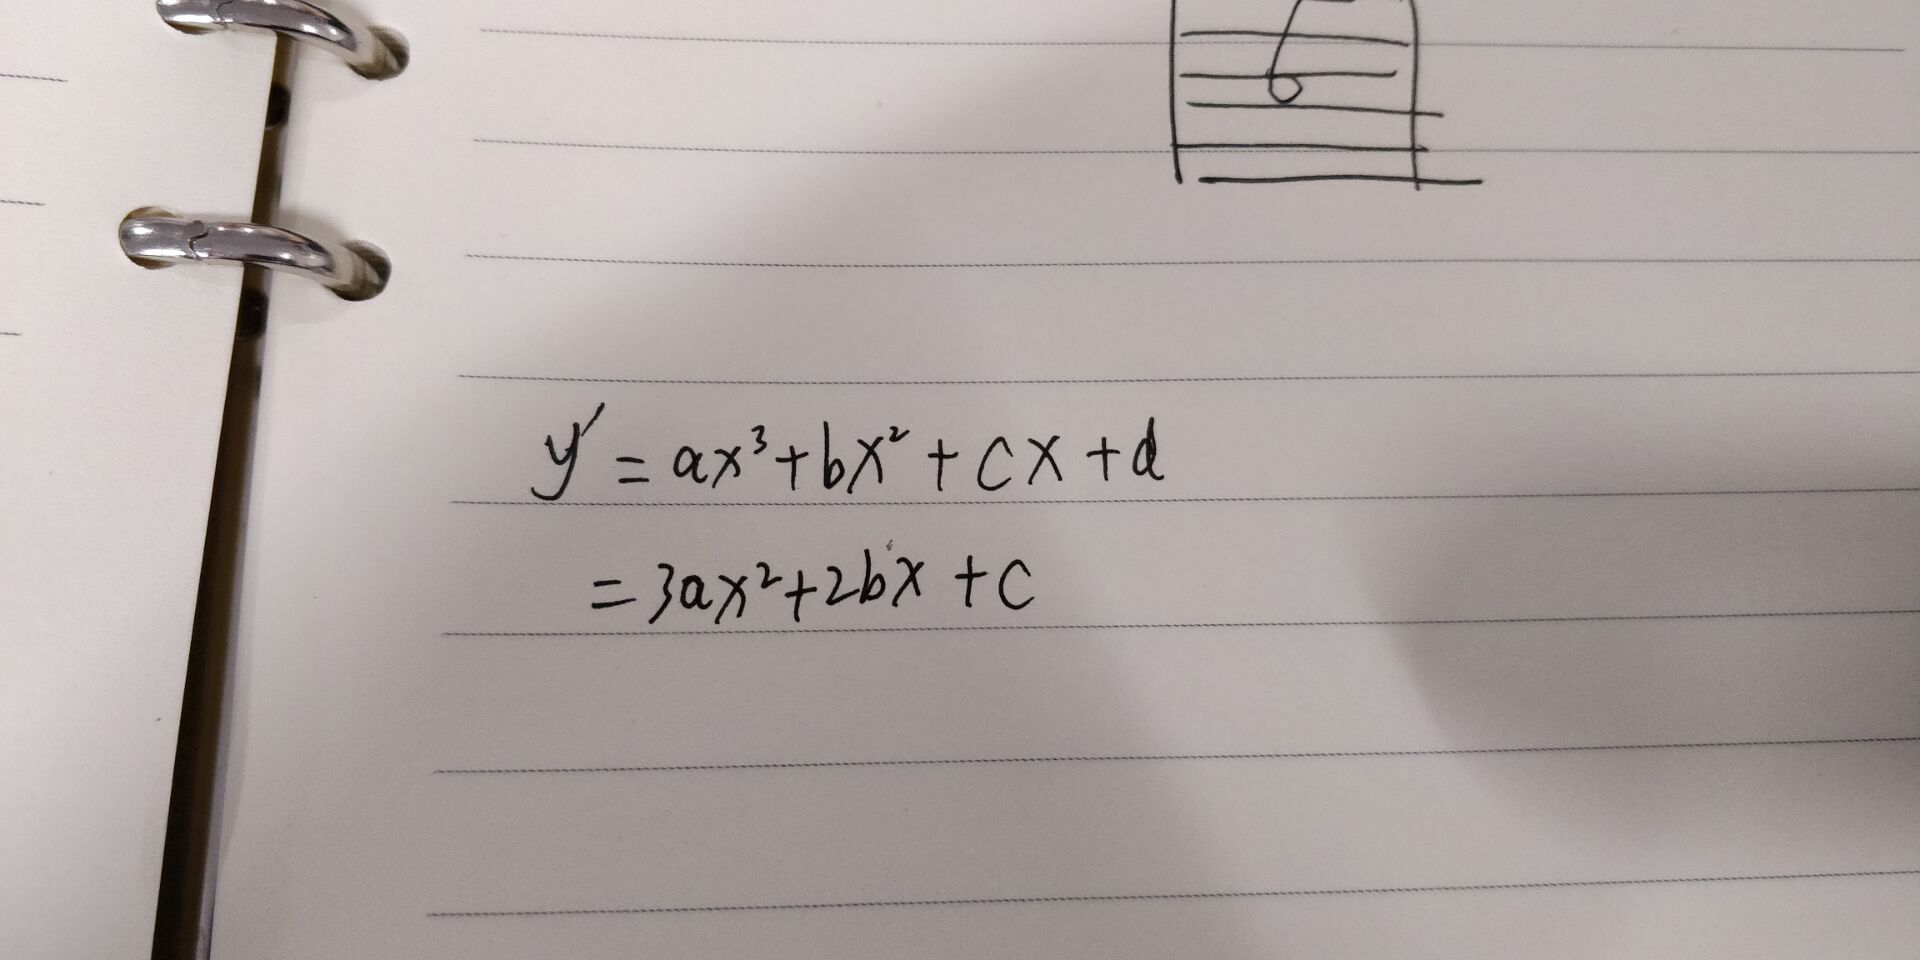 y' = ax³+bx² + cx +d
= 3ax²+2bx +c